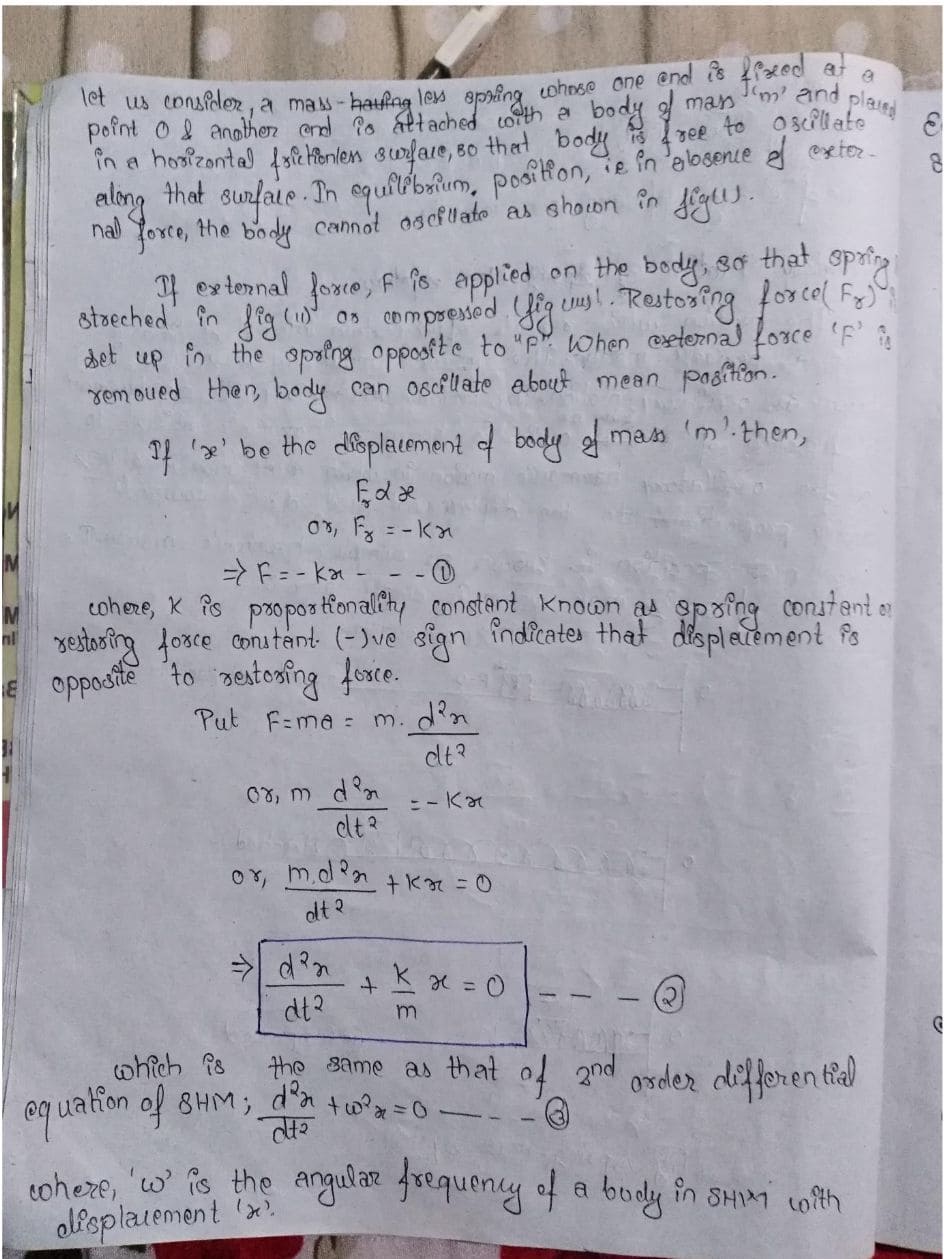 let us consider, a mass-having less spring whose one end is fixed at a
point O & another end is attached with a body of mass 'm' and placed
in a horizontal frictionless surface, so that body is free to oscillate
along that surface. In equilibrium, position, ie in absence of exter-
nal force, the body cannot oscillate as shown in fig(i).
If external force, F is applied on the body, so that spring
streched in fig (ii) or compressed (fig (iii)). Restoring force (Fr)
set up in the spring opposite to "F". When external force 'F' is
removed then, body can oscillate about mean position.
If 'x' be the displacement of body of mass 'm'. then,
Fr ∝ x
or, Fr = - Kx
⇒ F = - Kx - - - ①
where, K is proportionality constant known as spring constant or
restoring force constant. (-)ve sign indicates that displacement is
opposite to restoring force.
Put F=ma = m. d²x/dt²
or, m d²x/dt² = - Kx
or, m.d²x/dt² + Kx = 0
⇒ d²x/dt² + K/m x = 0 - - - ②
which is the same as that of 2nd order differential
equation of SHM; d²x/dt² + ω²x = 0 - - - ③
where, 'ω' is the angular frequency of a body in SHM with
displacement 'x'.